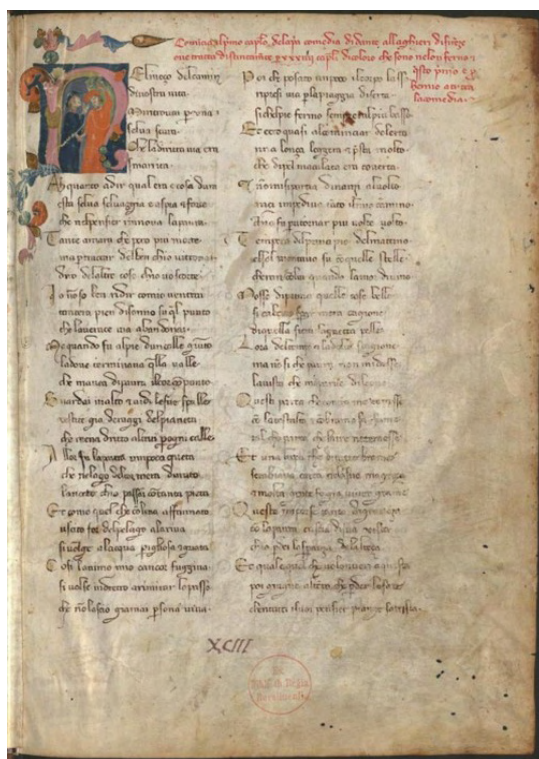 Comīcia lpimo caplo. comedia di dante allaghieri di
capli. dicoloro che sono
qsto
hemio a tucta
lacomedia.
El meço delcamin
dinostra uita
Mi ritrouai per una
selua scura
Che ladiritta uia era
smarita
Ah quanto adir qual era e cosa dura
esta selua seluaggia e aspra e forte
che nelpensier rinoua lapaura.
Tante amara che poco piu morte
ma ptractar delben chio ui trouai
diro delaltre cose chio
Io nō so ben ridir comio
tantera pien disonno su ql punto
che lauerace uia abandonai.
Ma quando fu alpie dun colle giunto
ladoue terminaua qlla ualle
che mauea dipaura ilcor
Guardai inalto e uidi lesue spalle
uestite gia deraggi delpianeta
che mena dritto altrui p ogni calle
Allor fu lapaura un poco queta
che nelago delcor mera durata
lanocte chio passai cōtanta pieta
Et come quel che cō lena affannata
uscito for delpelago alariua
si uolge alacqua pigliosa e guata
Cosi lanimo mio cancor fuggiua
si uolse indietro arimirar lo passo
che nō lascio gramai psona uiua.
Poi che posato unpoco ilcorpo lasso
ripresi uia plapiaggia diserta
si chelpie fermo sempre era lpiu basso
Et ecco quasi alcominciar delerta
una lonça leggera e psta molto
che dipel maculato era couerta.
nō misi partia dinançi aluolto
anci impediua tāto ilmio camino
chio fu pritornar piu uolte uolto
Tempera dalprincipio delmatino
el sol montaua su cō quelle stelle
cheran cō lui quando lamor diuino
Mosse diprima quelle cose belle
si cabene sperar mera cagione
diquella fiera laghaetta pelle
Lora deltempo e la dolce stagione
ma nō si che paura non mi desse
lauista che maparue dun leone
Questi parea che contra me uenisse
cō latestalta e cō rabiosa fame
si che parea che laere
Et una lupa che di tutte brame
sembiaua carca nelasua magreça
e molte gente fe gia uiuer grame
Questa mi porse tanto di greueça
cō lapaura cuscia di sua uista
chio pdei lasperança delalteça
Et quale quel che uolontieri aquista
poi giugne altēpo che pder loface
chentucti isuoi pensier piange e satrista.
XCIII